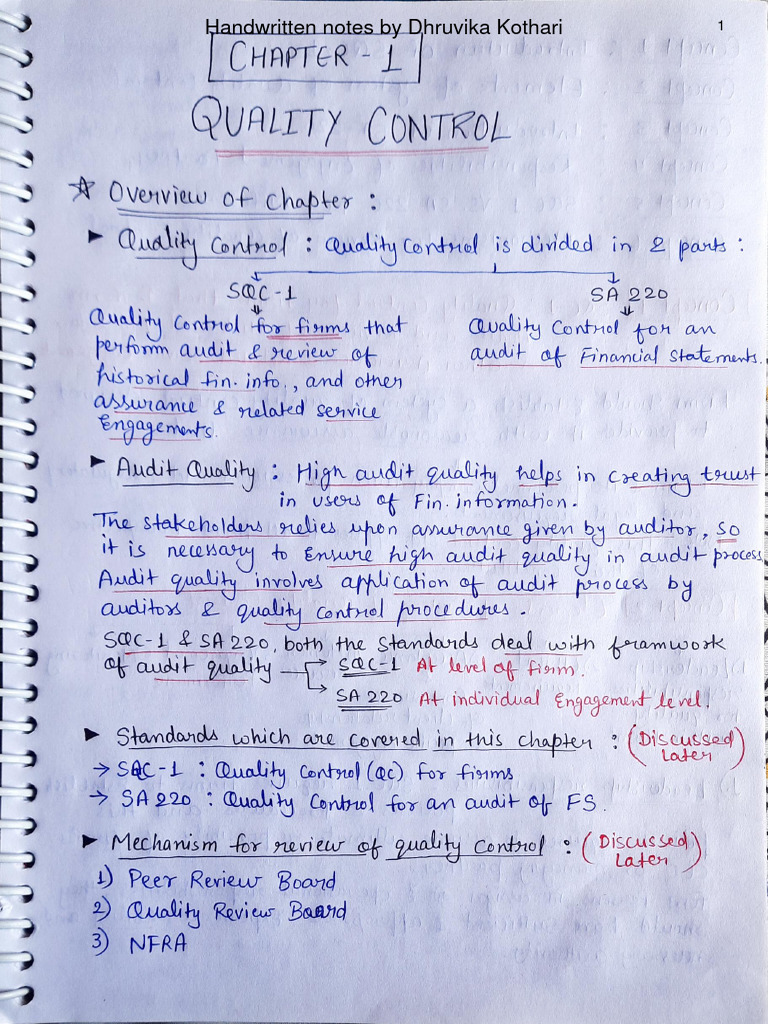 Handwritten notes by Dhruvika Kothari
1
CHAPTER - 1
QUALITY CONTROL
☆ Overview of chapter :
► Quality Control : Quality Control is divided in 2 parts :
SQC-1
SA 220
Quality Control for firms that
perform audit & review of
historical fin. info., and other
assurance & related service
Engagements.
Quality Control for an
audit of Financial Statements.
► Audit Quality : High audit quality helps in creating trust
in users of Fin. information.
The stakeholders relies upon assurance given by auditor, so
it is necessary to Ensure high audit quality in audit process
Audit quality involves application of audit process by
auditors & quality control procedures.
SQC-1 & SA 220, both the Standards deal with framwork
of audit quality → SQC-1 At level of firm.
→ SA 220 At individual Engagement level.
► Standards which are covered in this chapter : (Discussed Later)
→ SQC-1 : Quality Control (QC) for firms
→ SA 220 : Quality Control for an audit of FS.
► Mechanism for review of quality Control : (Discussed Later)
1) Peer Review Board
2) Quality Review Board
3) NFRA